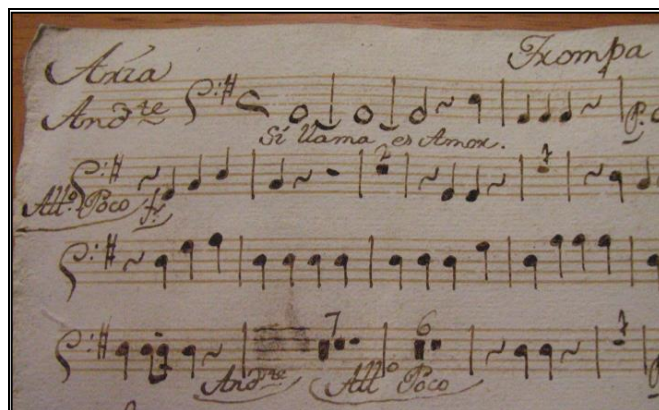 Aria Trompa
And.te
Si llama es Amor. P.
2 1
All.o Poco f.
7 6 1
And.te All.o Poco